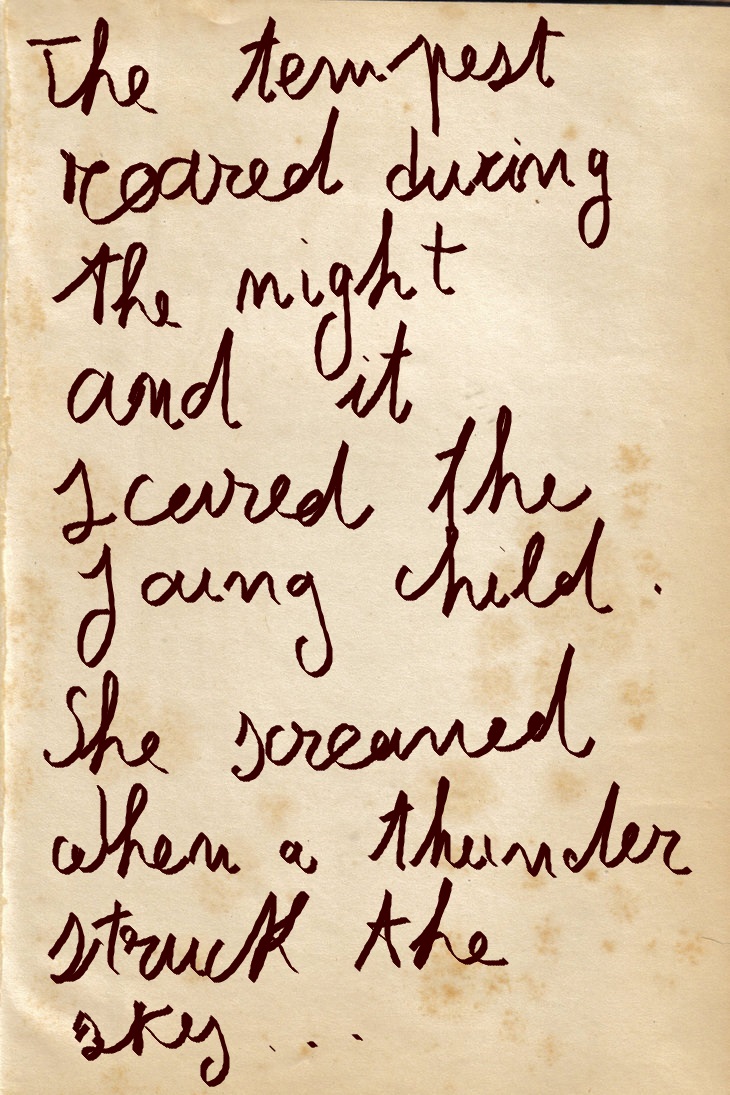 The tempest
roared during
the night
and it
scared the
young child.
She screamed
when a thunder
struck the
sky...